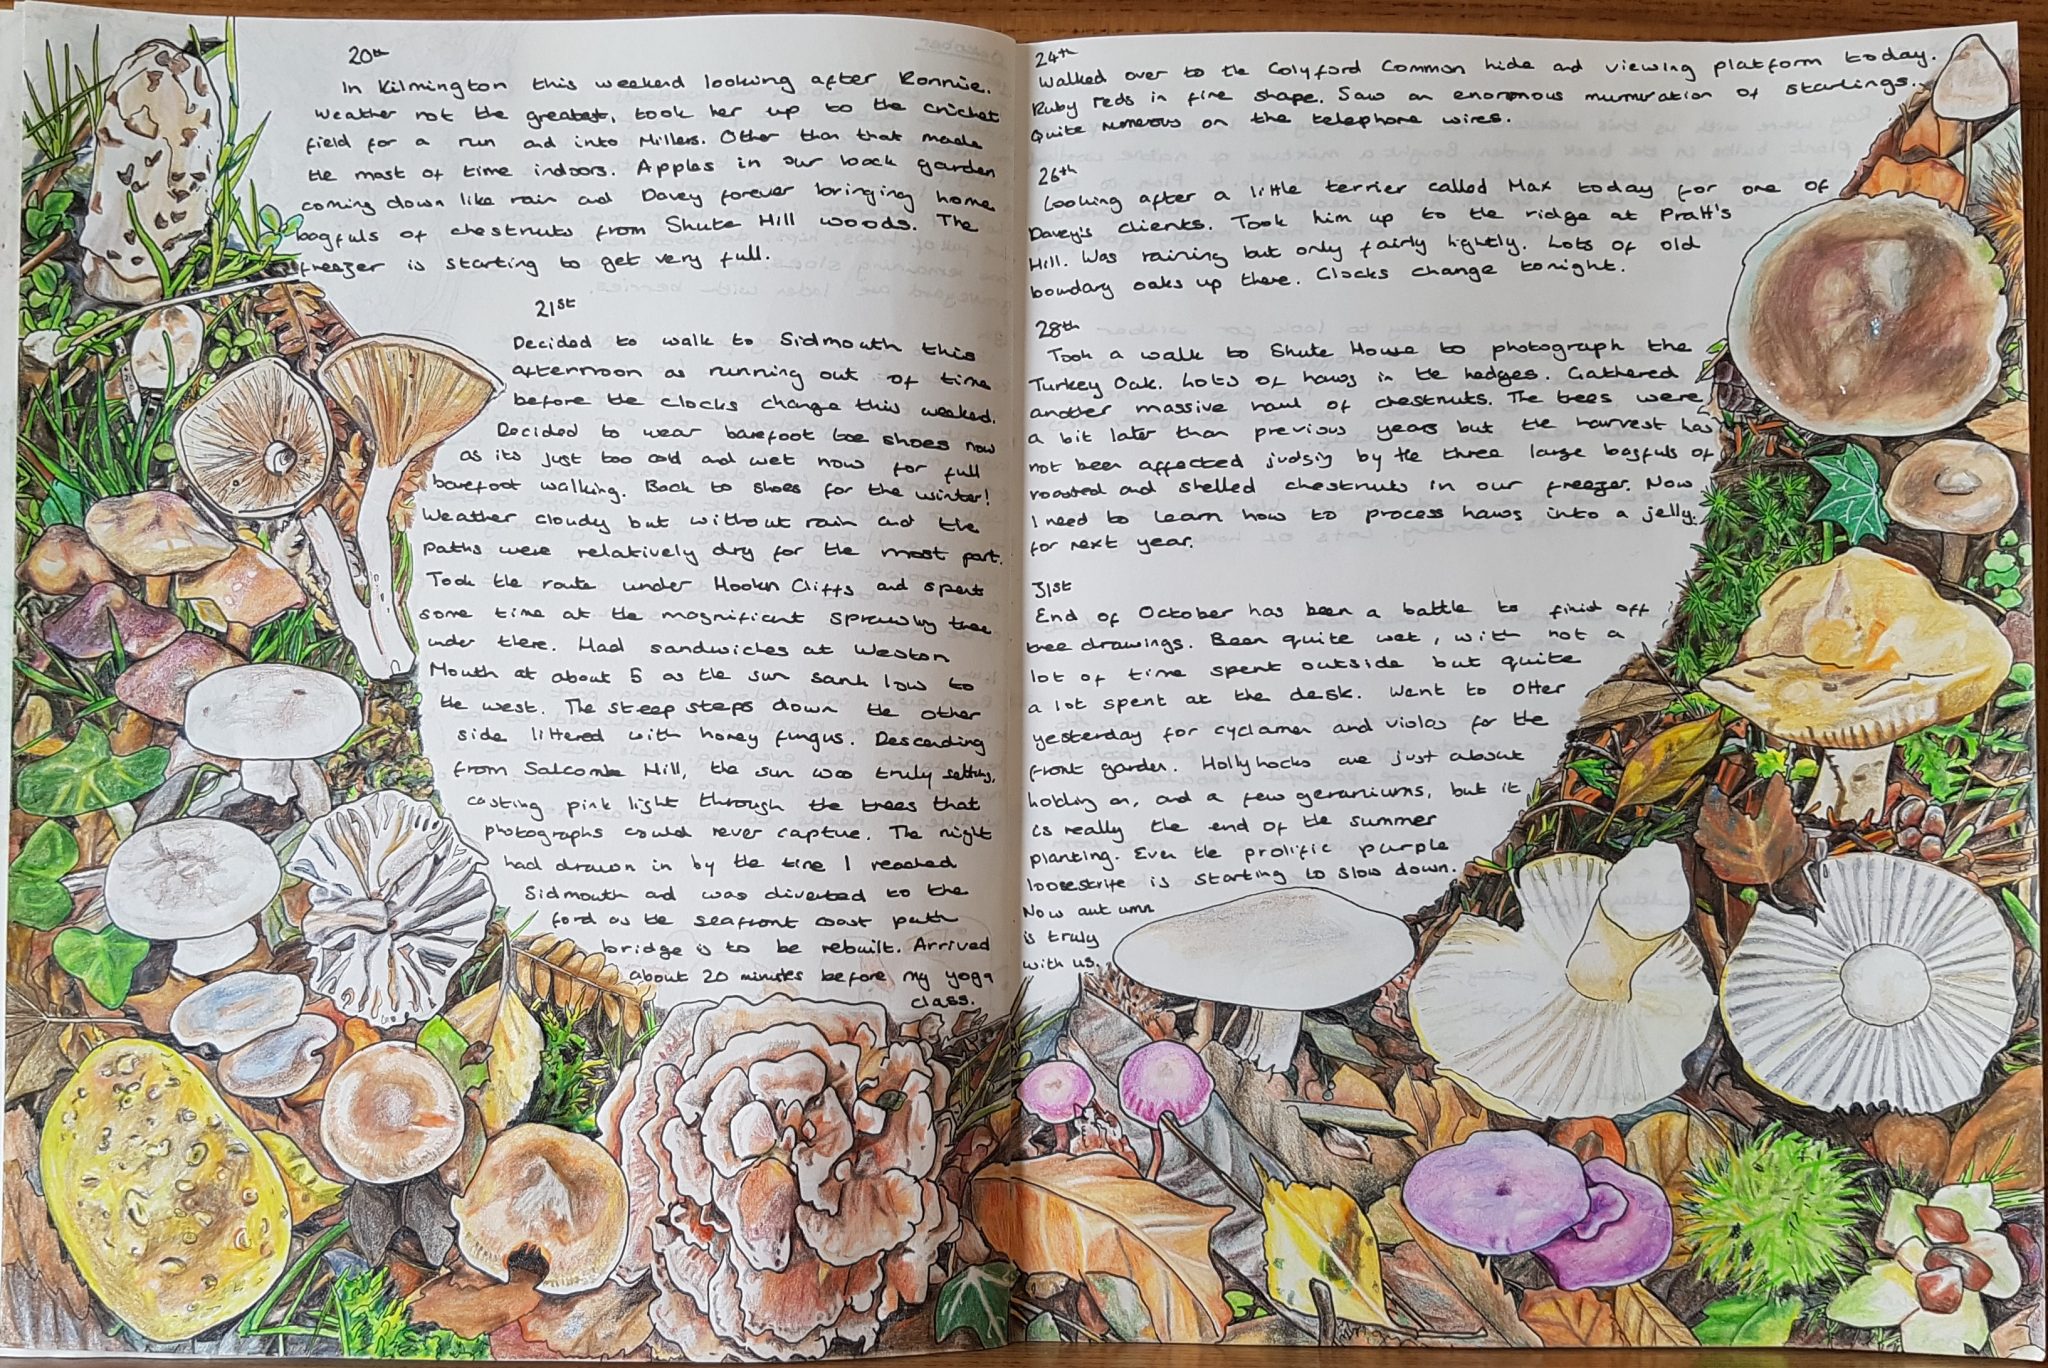 20th
In Kilmington this weekend looking after Ronnie.
Weather not the greatest, took her up to the cricket
field for a run and into Millers. Other than that made
the most of time indoors. Apples in our back garden
coming down like rain and Davey forever bringing home
bagfuls of chestnuts from Shute Hill woods. The
freezer is starting to get very full.
21st
Decided to walk to Sidmouth this
afternoon as running out of time
before the clocks change this weekend.
Decided to wear barefoot toe shoes now
as its just too cold and wet now for full
barefoot walking. Back to shoes for the winter!
Weather cloudy but without rain and the
paths were relatively dry for the most part.
Took the route under Hooken Cliffs and spent
some time at the magnificent sprawling tree
under there. Had sandwiches at Weston
Mouth at about 5 as the sun sank low to
the west. The steep steps down the other
side littered with honey fungus. Descending
from Salcombe Hill, the sun was truly setting,
casting pink light through the trees that
photographs could never capture. The night
had drawn in by the time I reached
Sidmouth and was diverted to the
ford as the seafront coast path
bridge is to be rebuilt. Arrived
about 20 minutes before my yoga
class.
24th
Walked over to the Colyford Common hide and viewing platform today.
Ruby reds in fine shape. Saw an enormous murmuration of starlings.
Quite numerous on the telephone wires.
26th
Looking after a little terrier called Max today for one of
Davey's clients. Took him up to the ridge at Pratt's
Hill. Was raining but only fairly lightly. Lots of old
boundary oaks up there. Clocks change tonight.
28th
Took a walk to Shute House to photograph the
Turkey Oak. Lots of haws in the hedges. Gathered
another massive haul of chestnuts. The trees were
a bit later than previous years but the harvest has
not been affected judging by the three large bagfuls of
roasted and shelled chestnuts in our freezer. Now
I need to learn how to process haws into a jelly
for next year.
31st
End of October has been a battle to finish off
tree drawings. Been quite wet, with not a
lot of time spent outside but quite
a lot spent at the desk. Went to Otter
yesterday for cyclamen and violas for the
front garden. Hollyhocks are just about
holding on, and a few geraniums, but it
is really the end of the summer
planting. Even the prolific purple
loosestrife is starting to slow down.
Now autumn
is truly
with us.